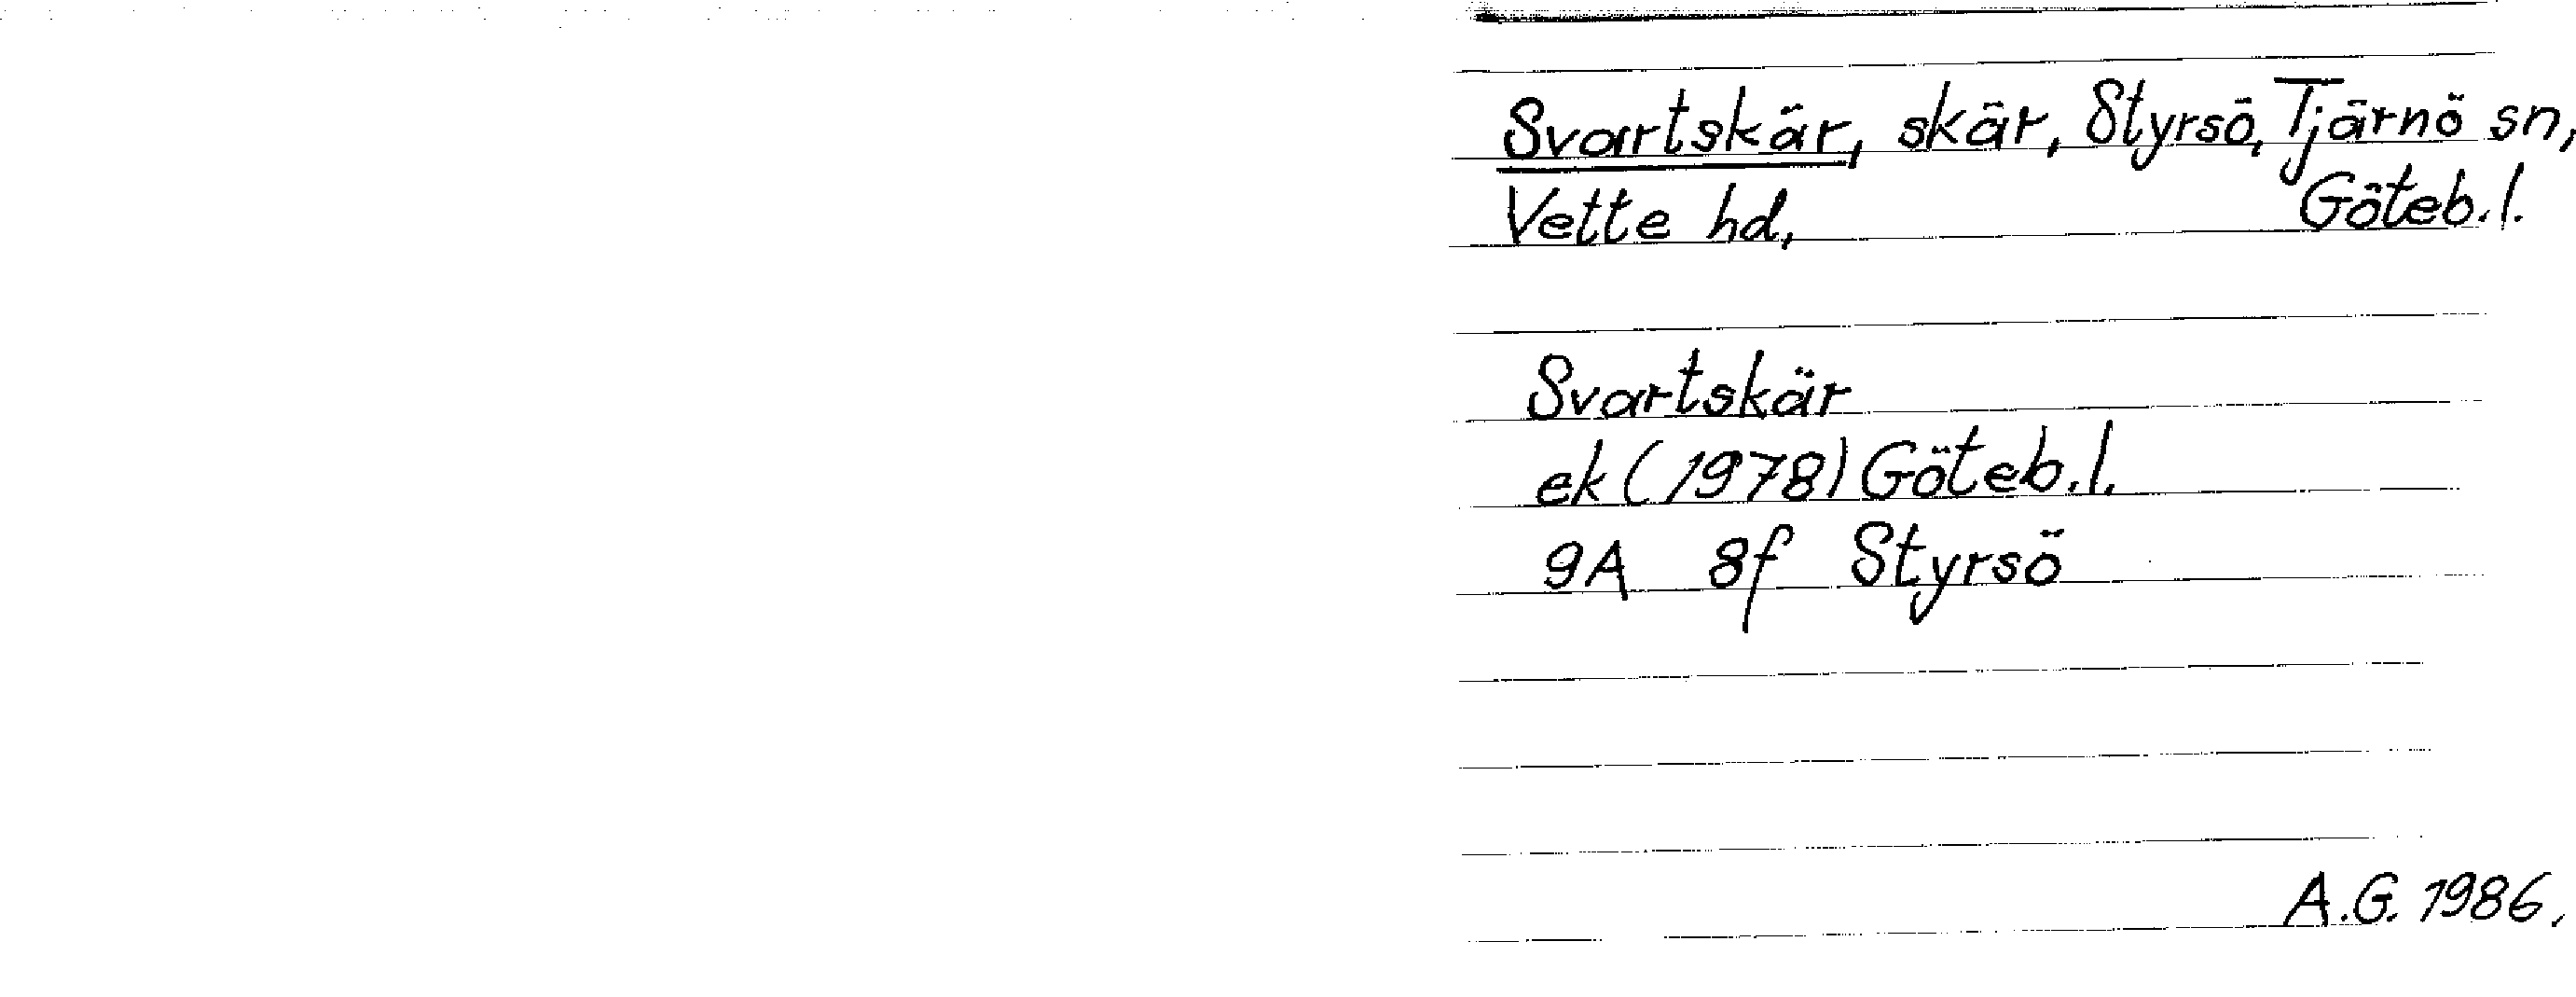 Svartskär, skär, Styrsö, Tjärnö sn,
Vette hd, Göteb.l.
Svartskär
ek (1978) Göteb.l.
9A 8f Styrsö
A.G. 1986.